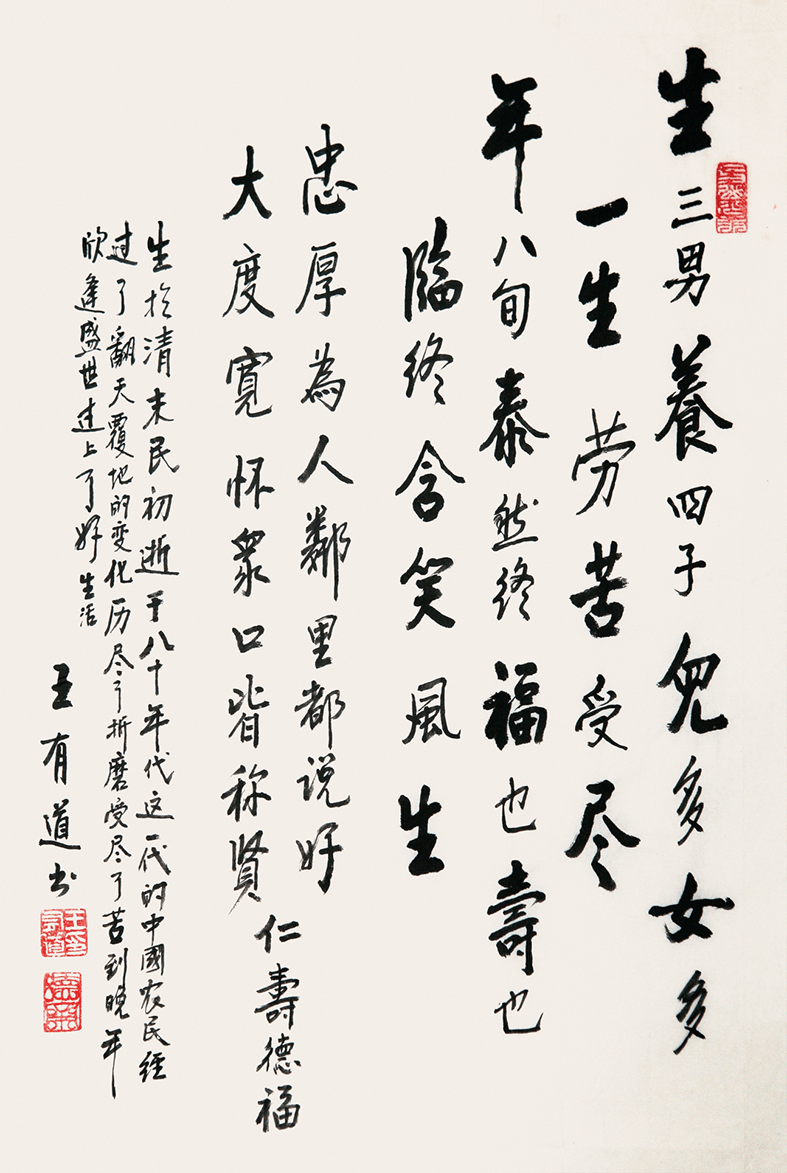 生三男養四子兒多女多
一生劳苦受尽
年八旬泰然终福也壽也
臨终含笑風生
忠厚為人鄰里都说好
大度寬怀衆口皆称贤
仁壽德福
生於清末民初逝于八十年代这一代的中國农民經
过了翻天覆地的变化历尽了折磨受尽了苦到晚年
欣逢盛世过上了好生活
王有道书
王印有道